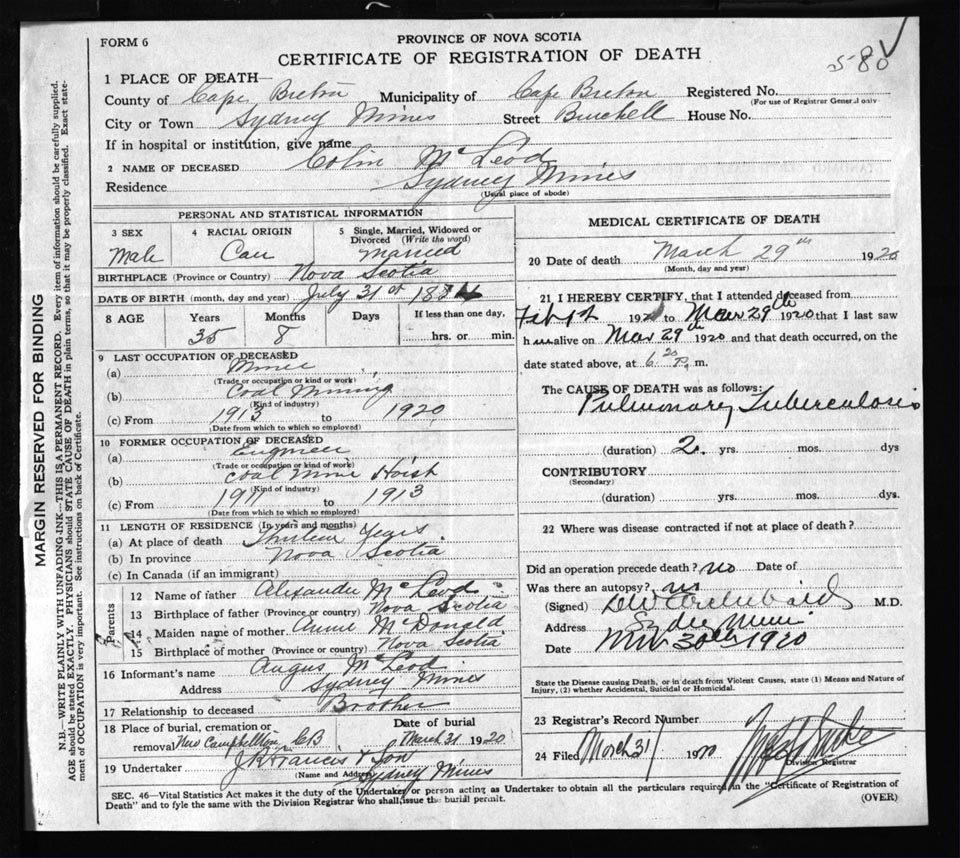 FORM 6
PROVINCE OF NOVA SCOTIA
CERTIFICATE OF REGISTRATION OF DEATH
580
1 PLACE OF DEATH—
County of Cape Breton Municipality of Cape Breton Registered No.
(For use of Registrar General only
City or Town Sydney Mines Street Burchell House No.
If in hospital or institution, give name
2 NAME OF DECEASED Colin McLeod
Residence Sydney Mines
(Usual place of abode)
PERSONAL AND STATISTICAL INFORMATION
3 SEX 4 RACIAL ORIGIN 5 Single, Married, Widowed or Divorced (Write the word)
Male Cau Married
BIRTHPLACE (Province or Country) Nova Scotia
DATE OF BIRTH (month, day and year) July 31st 1884
8 AGE Years Months Days If less than one day,
35 8 hrs. or min.
9 LAST OCCUPATION OF DECEASED
(a) Miner
(Trade or occupation or kind of work)
(b) Coal Mining
(Kind of industry)
(c) From 1913 to 1920
(Date from which to which so employed)
10 FORMER OCCUPATION OF DECEASED
(a) Engineer
(Trade or occupation or kind of work)
(b) Coal Mine Hoist
(Kind of industry)
(c) From to 1913
(Date from which to which so employed)
11 LENGTH OF RESIDENCE (In years and months)
(a) At place of death Thirteen Years
(b) In province Nova Scotia
(c) In Canada (if an immigrant)
Parents
12 Name of father Alexander McLeod
13 Birthplace of father (Province or country) Nova Scotia
14 Maiden name of mother Annie McDonald
15 Birthplace of mother (Province or country) Nova Scotia
16 Informant's name Angus McLeod
Address Sydney Mines
17 Relationship to deceased Brother
18 Place of burial, cremation or removal New Campbellton CB Date of burial March 31 1920
19 Undertaker J R Francis & Son
(Name and Address) Sydney Mines
MEDICAL CERTIFICATE OF DEATH
20 Date of death March 29th 1920
(Month, day and year)
21 I HEREBY CERTIFY, that I attended deceased from
192 to Mar 29th 1920 that I last saw
h im alive on Mar 29th 1920 and that death occurred, on the
date stated above, at 6.20 P. m.
The CAUSE OF DEATH was as follows:
Pulmonary Tuberculosis
(duration) 2 yrs. mos. dys
CONTRIBUTORY
(Secondary)
(duration) yrs. mos. dys.
22 Where was disease contracted if not at place of death?
Did an operation precede death? no Date of
Was there an autopsy? no
(Signed) Archibald M.D.
Address Sydney Mines
Date Mar 30th 1920
State the Disease causing Death, or in death from Violent Causes, state (1) Means and Nature of
Injury, (2) whether Accidental, Suicidal or Homicidal.
23 Registrar's Record Number
24 Filed March 31 1920
Division Registrar
SEC. 46—Vital Statistics Act makes it the duty of the Undertaker or person acting as Undertaker to obtain all the particulars required in the "Certificate of Registration of
Death" and to fyle the same with the Division Registrar who shall issue the burial permit.
(OVER)
MARGIN RESERVED FOR BINDING
N.B.—WRITE PLAINLY WITH UNFADING INK—THIS IS A PERMANENT RECORD. Every item of information should be carefully supplied.
AGE should be stated EXACTLY. PHYSICIANS should STATE CAUSE OF DEATH in plain terms, so that it may be properly classified. Exact state-
ment of OCCUPATION is very important. See instructions on back of Certificate.